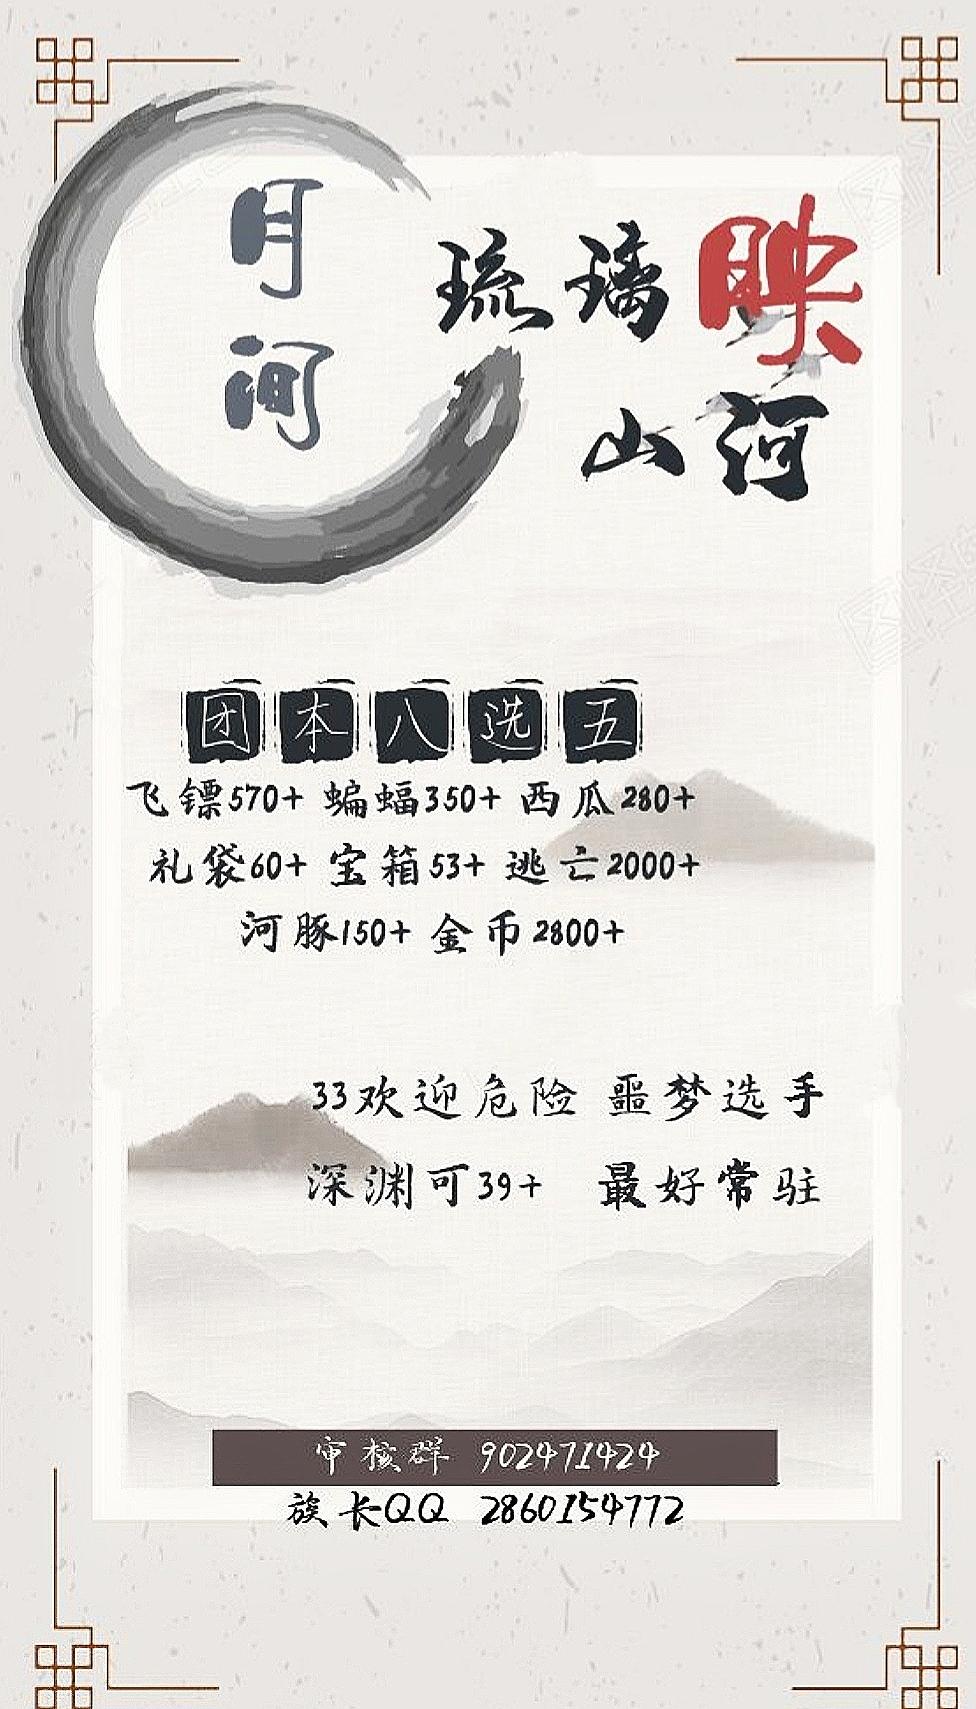 月
间
琉璃映
山河
团本八选五
飞镖570+ 蝙蝠350+ 西瓜280+
礼袋60+ 宝箱53+ 逃亡2000+
河豚150+ 金币2800+
33欢迎危险 噩梦选手
深渊可39+ 最好常驻
审核群 902471424
族长QQ 2860154772